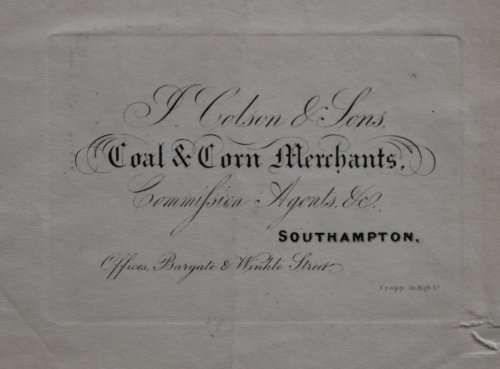 J. Colson & Sons,
Coal & Corn Merchants,
Commiſsion Agents, &c.
SOUTHAMPTON.
Offices, Bargate & Winkle Street
High St